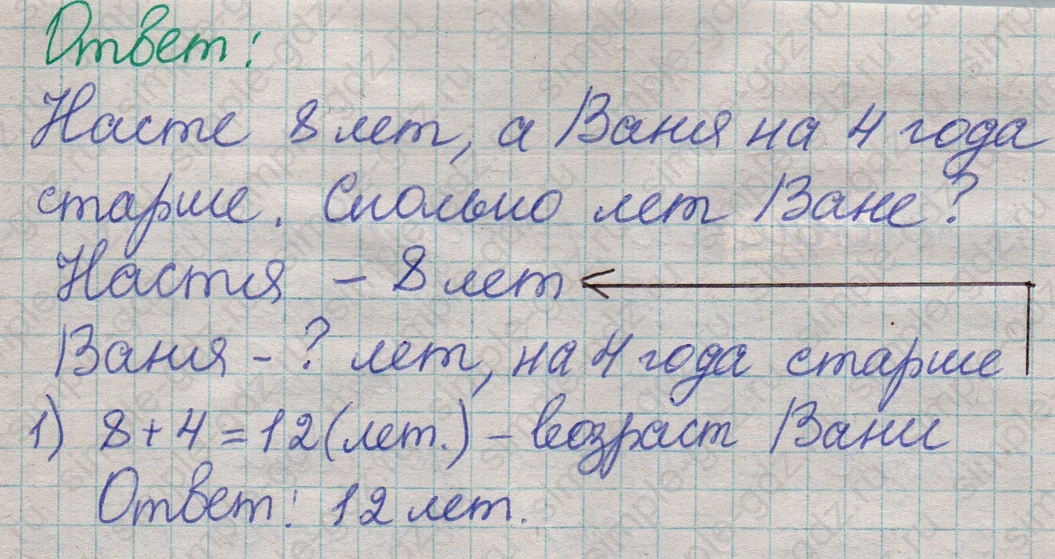 Ответ:
Насте 8 лет, а Ваня на 4 года
старше. Сколько лет Ване?
Настя – 8 лет
Ваня - ? лет, на 4 года старше
1) 8 + 4 = 12 (лет.) – возраст Вани
Ответ: 12 лет.